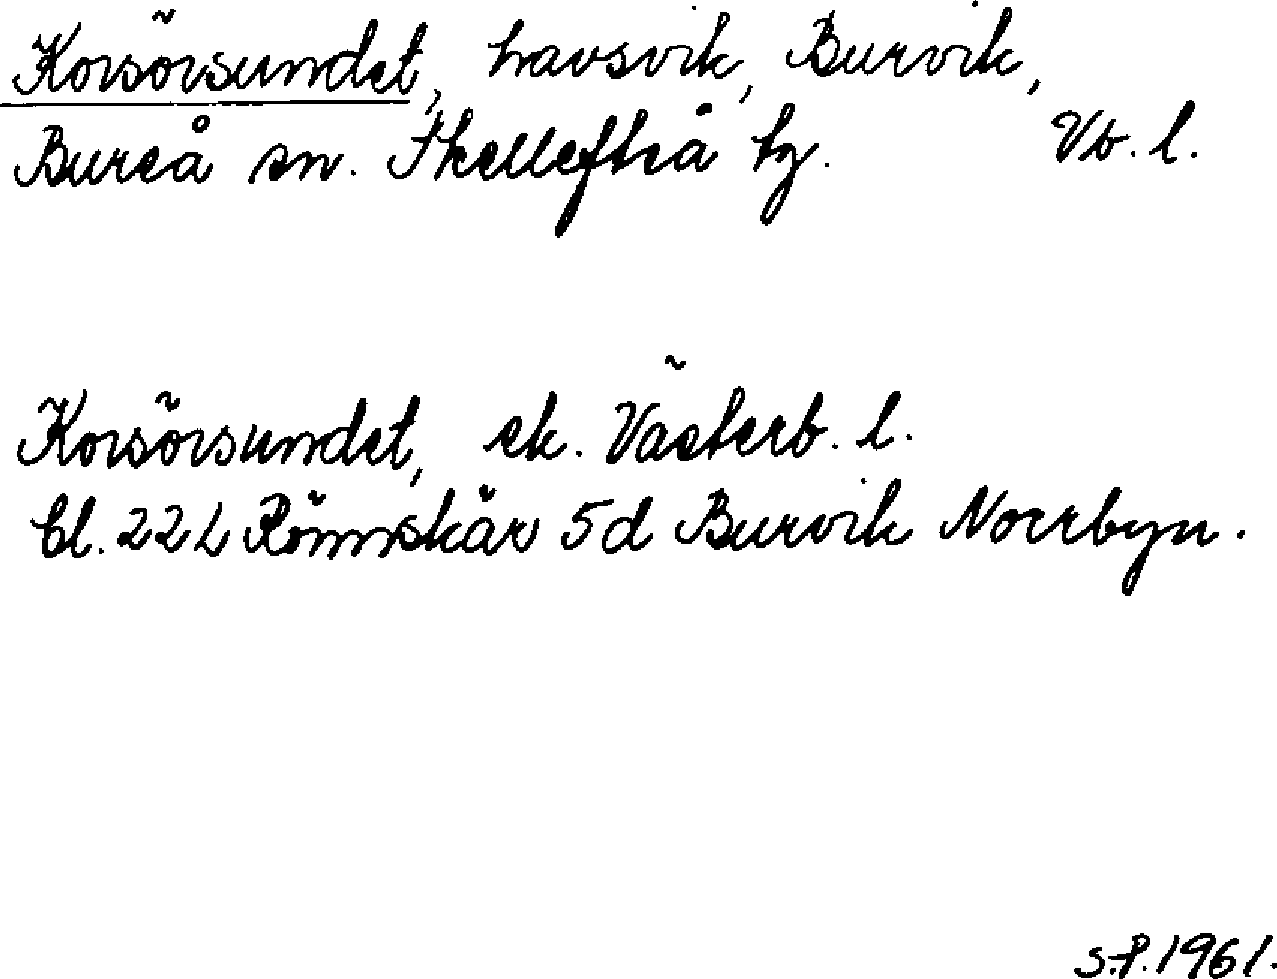 Korsörsundet, havsvik, Burvik,
Bureå sn. Skellefteå tg. Vb. l.
Korsörsundet, ek. Västerb. l.
bl. 22 L Rönnskär 5d Burvik Norrbyn.
S.P. 1961.